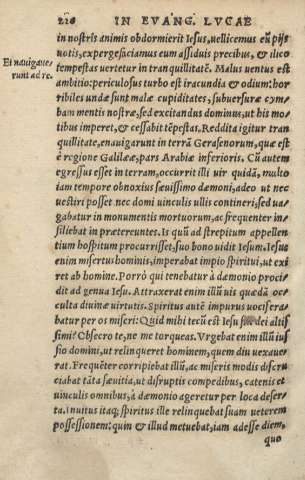 226 IN EVANG. LVCAE
in nostris animis obdormierit Iesus, uellicemus eũ pijs
uotis, expergefaciamus eum assiduis precibus, & ilico
Et nauigaue- tempestas uertetur in tranquillitatẽ. Malus uentus est
runt ad re. ambitio: periculosus turbo est iracundia & odium: hor
ribiles undæ sunt malæ cupiditates, subuersuræ cym-
bam mentis nostræ, sed excitandus dominus, ut his mo
tibus imperet, & cessabit tẽpestas. Reddita igitur tran
quillitate, enauigarunt in terrã Gerasenorum, quæ est
è regione Galilææ, pars Arabiæ inferioris. Cũ autem
egressus esset in terram, occurrit illi uir quidã, multo
iam tempore obnoxius sæuissimo dæmoni, adeo ut nec
uestiri posset nec domi uinculis ullis contineri, sed ua-
gabatur in monumentis mortuorum, ac frequenter in-
siliebat in prætereuntes. Is quũ ad strepitum appellen
tium hospitum procurrisset, suo bono uidit Iesum. Iesus
enim misertus hominis, imperabat impio spiritui, ut exi
ret ab homine. Porrò qui tenebatur à dæmonio proci
dit ad genua Iesu. Attraxerat enim illũ uis quædã oc
culta diuinæ uirtutis. Spiritus autẽ impurus uocifera
batur per os miseri: Quid mihi tecũ est Iesu fili dei altis
simi? Obsecro te, ne me torqueas. Vrgebat enim illũ ius
sio domini, ut relinqueret hominem, quem diu uexaue
rat. Frequẽter corripiebat illũ, ac miseris modis discru
ciabat tãta sæuitia, ut disruptis compedibus, catenis et
uinculis omnibus, à dæmonio ageretur per loca deser
ta. Inuitus itaq; spiritus ille relinquebat suam ueterem
possessionem: quin & illud metuebat, iam adesse diem,
quo